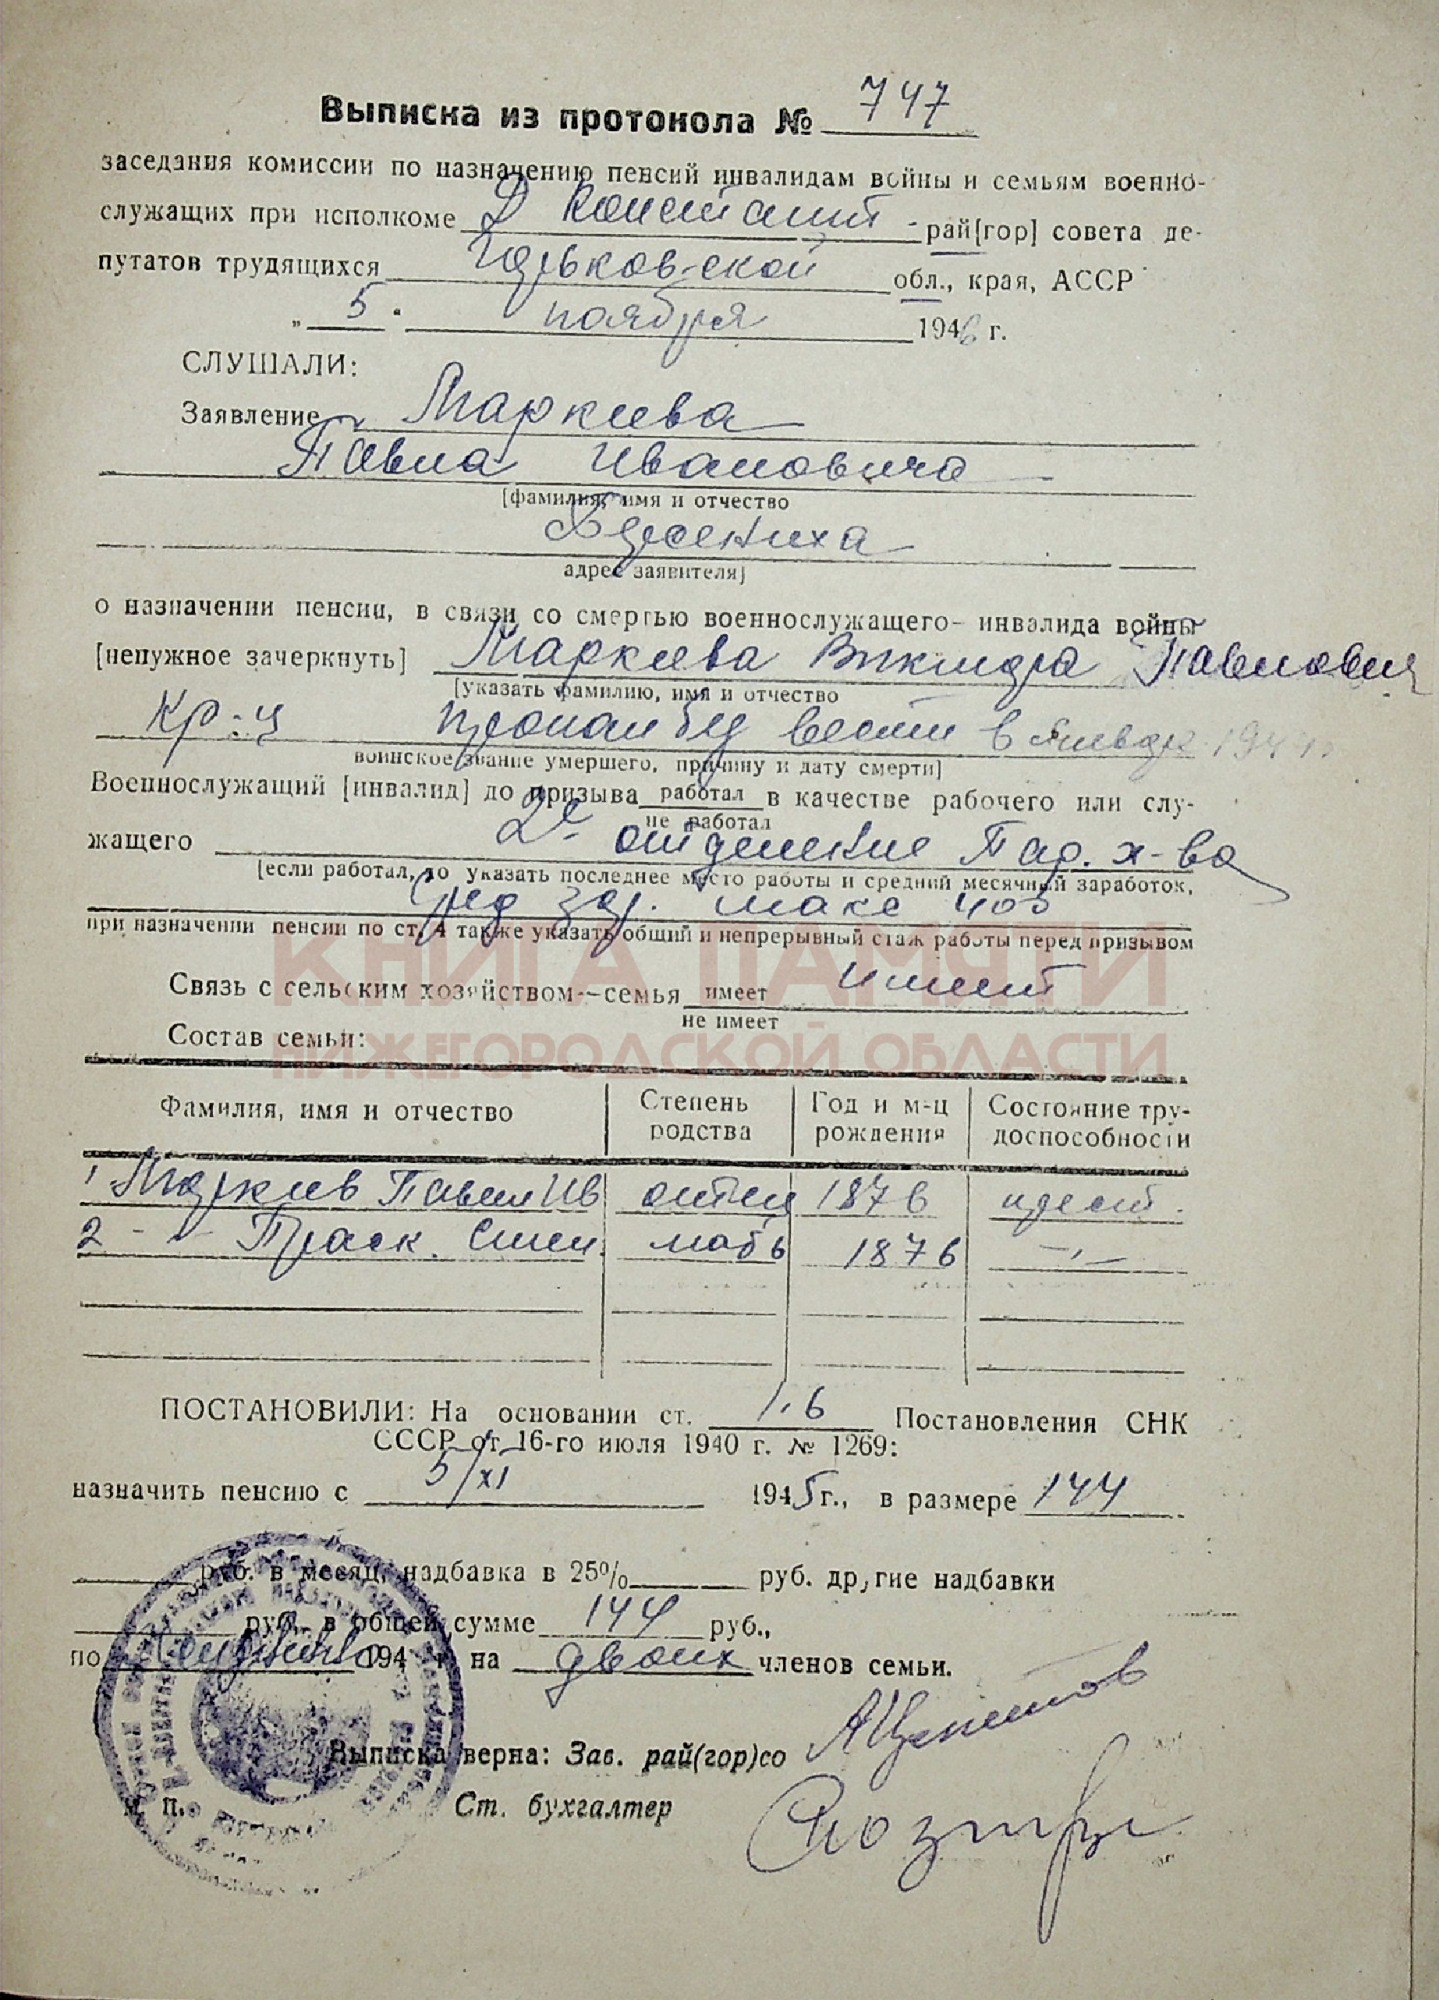 Выписка из протокола № 747
заседания комиссии по назначению пенсий инвалидам войны и семьям военно-
служащих при исполкоме Д Констант - рай[гор] совета де-
путатов трудящихся Горьковской обл., края, АССР
„ 5 " ноября 1946 г.
СЛУШАЛИ:
Заявление Маркева
Павла Ивановича
[фамилия, имя и отчество
адрес заявителя]
о назначении пенсии, в связи со смертью военнослужащего- инвалида войны
[ненужное зачеркнуть] Маркева Виктора Павлович
[указать фамилию, имя и отчество
Кр-ц пропал без вести в январе 1944г.
воинское звание умершего, причину и дату смерти]
Военнослужащий [инвалид] до призыва работал в качестве рабочего или слу-
не работал
жащего 2е отделение х-ва
[если работал, то указать последнее место работы и средний месячный заработок,
сред зар. макс 400
при назначении пенсии по ст. 4 также указать общий и непрерывный стаж работы перед призывом
КНИГА ПАМЯТИ
Связь с сельским хозяйством—семья имеет имеет
не имеет
НИЖЕГОРОДСКОЙ ОБЛАСТИ
Состав семьи:
Фамилия, имя и отчество Степень родства Год и м-ц рождения Состояние тру-доспособности
1 Маркев Павел Ив отец 1876 прест.
2 -"- Праск. Степ. мать 1876 -"-
ПОСТАНОВИЛИ: На основании ст. 1.6 Постановления СНК
СССР от 16-го июля 1940 г. № 1269:
назначить пенсию с 5/XI 1945г., в размере 144
руб. в месяц, надбавка в 25% руб. другие надбавки
руб., в общей сумме 144 руб.,
по 194 г. на двоих членов семьи.
Выписка верна: Зав. рай(гор)со
м. п. Ст. бухгалтер